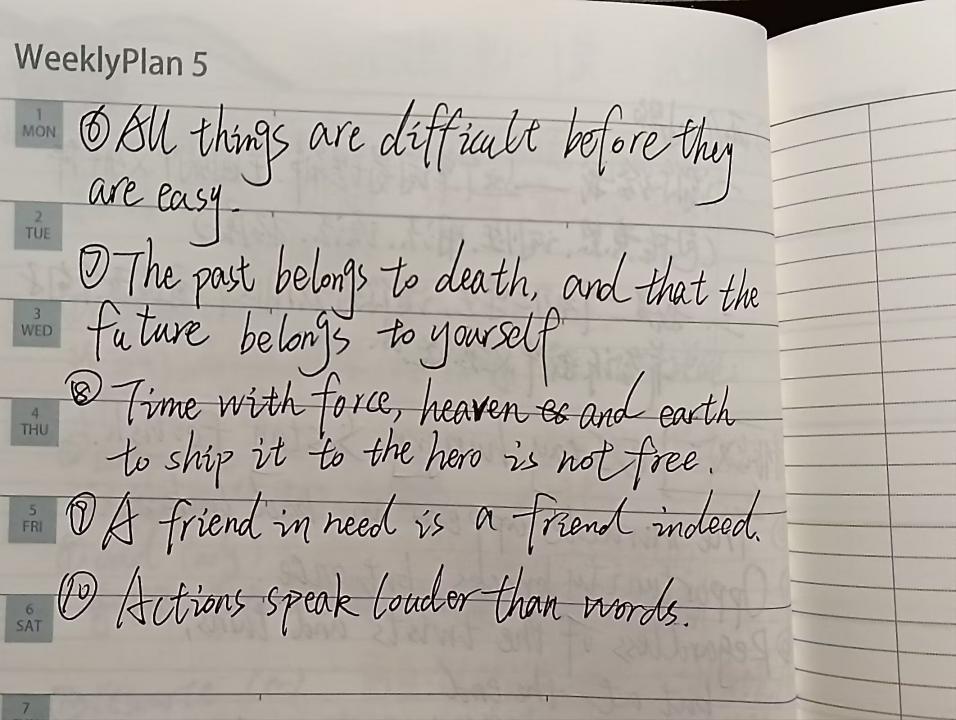 WeeklyPlan 5
1
MON
⑥ All things are difficult before they
are easy.
2
TUE
⑦ The past belongs to death, and that the
future belongs to yourself
3
WED
⑧ Time with force, heaven and earth
4
THU
to ship it to the hero is not free.
5
FRI
⑨ A friend in need is a friend indeed.
⑩ Actions speak louder than words.
6
SAT
7